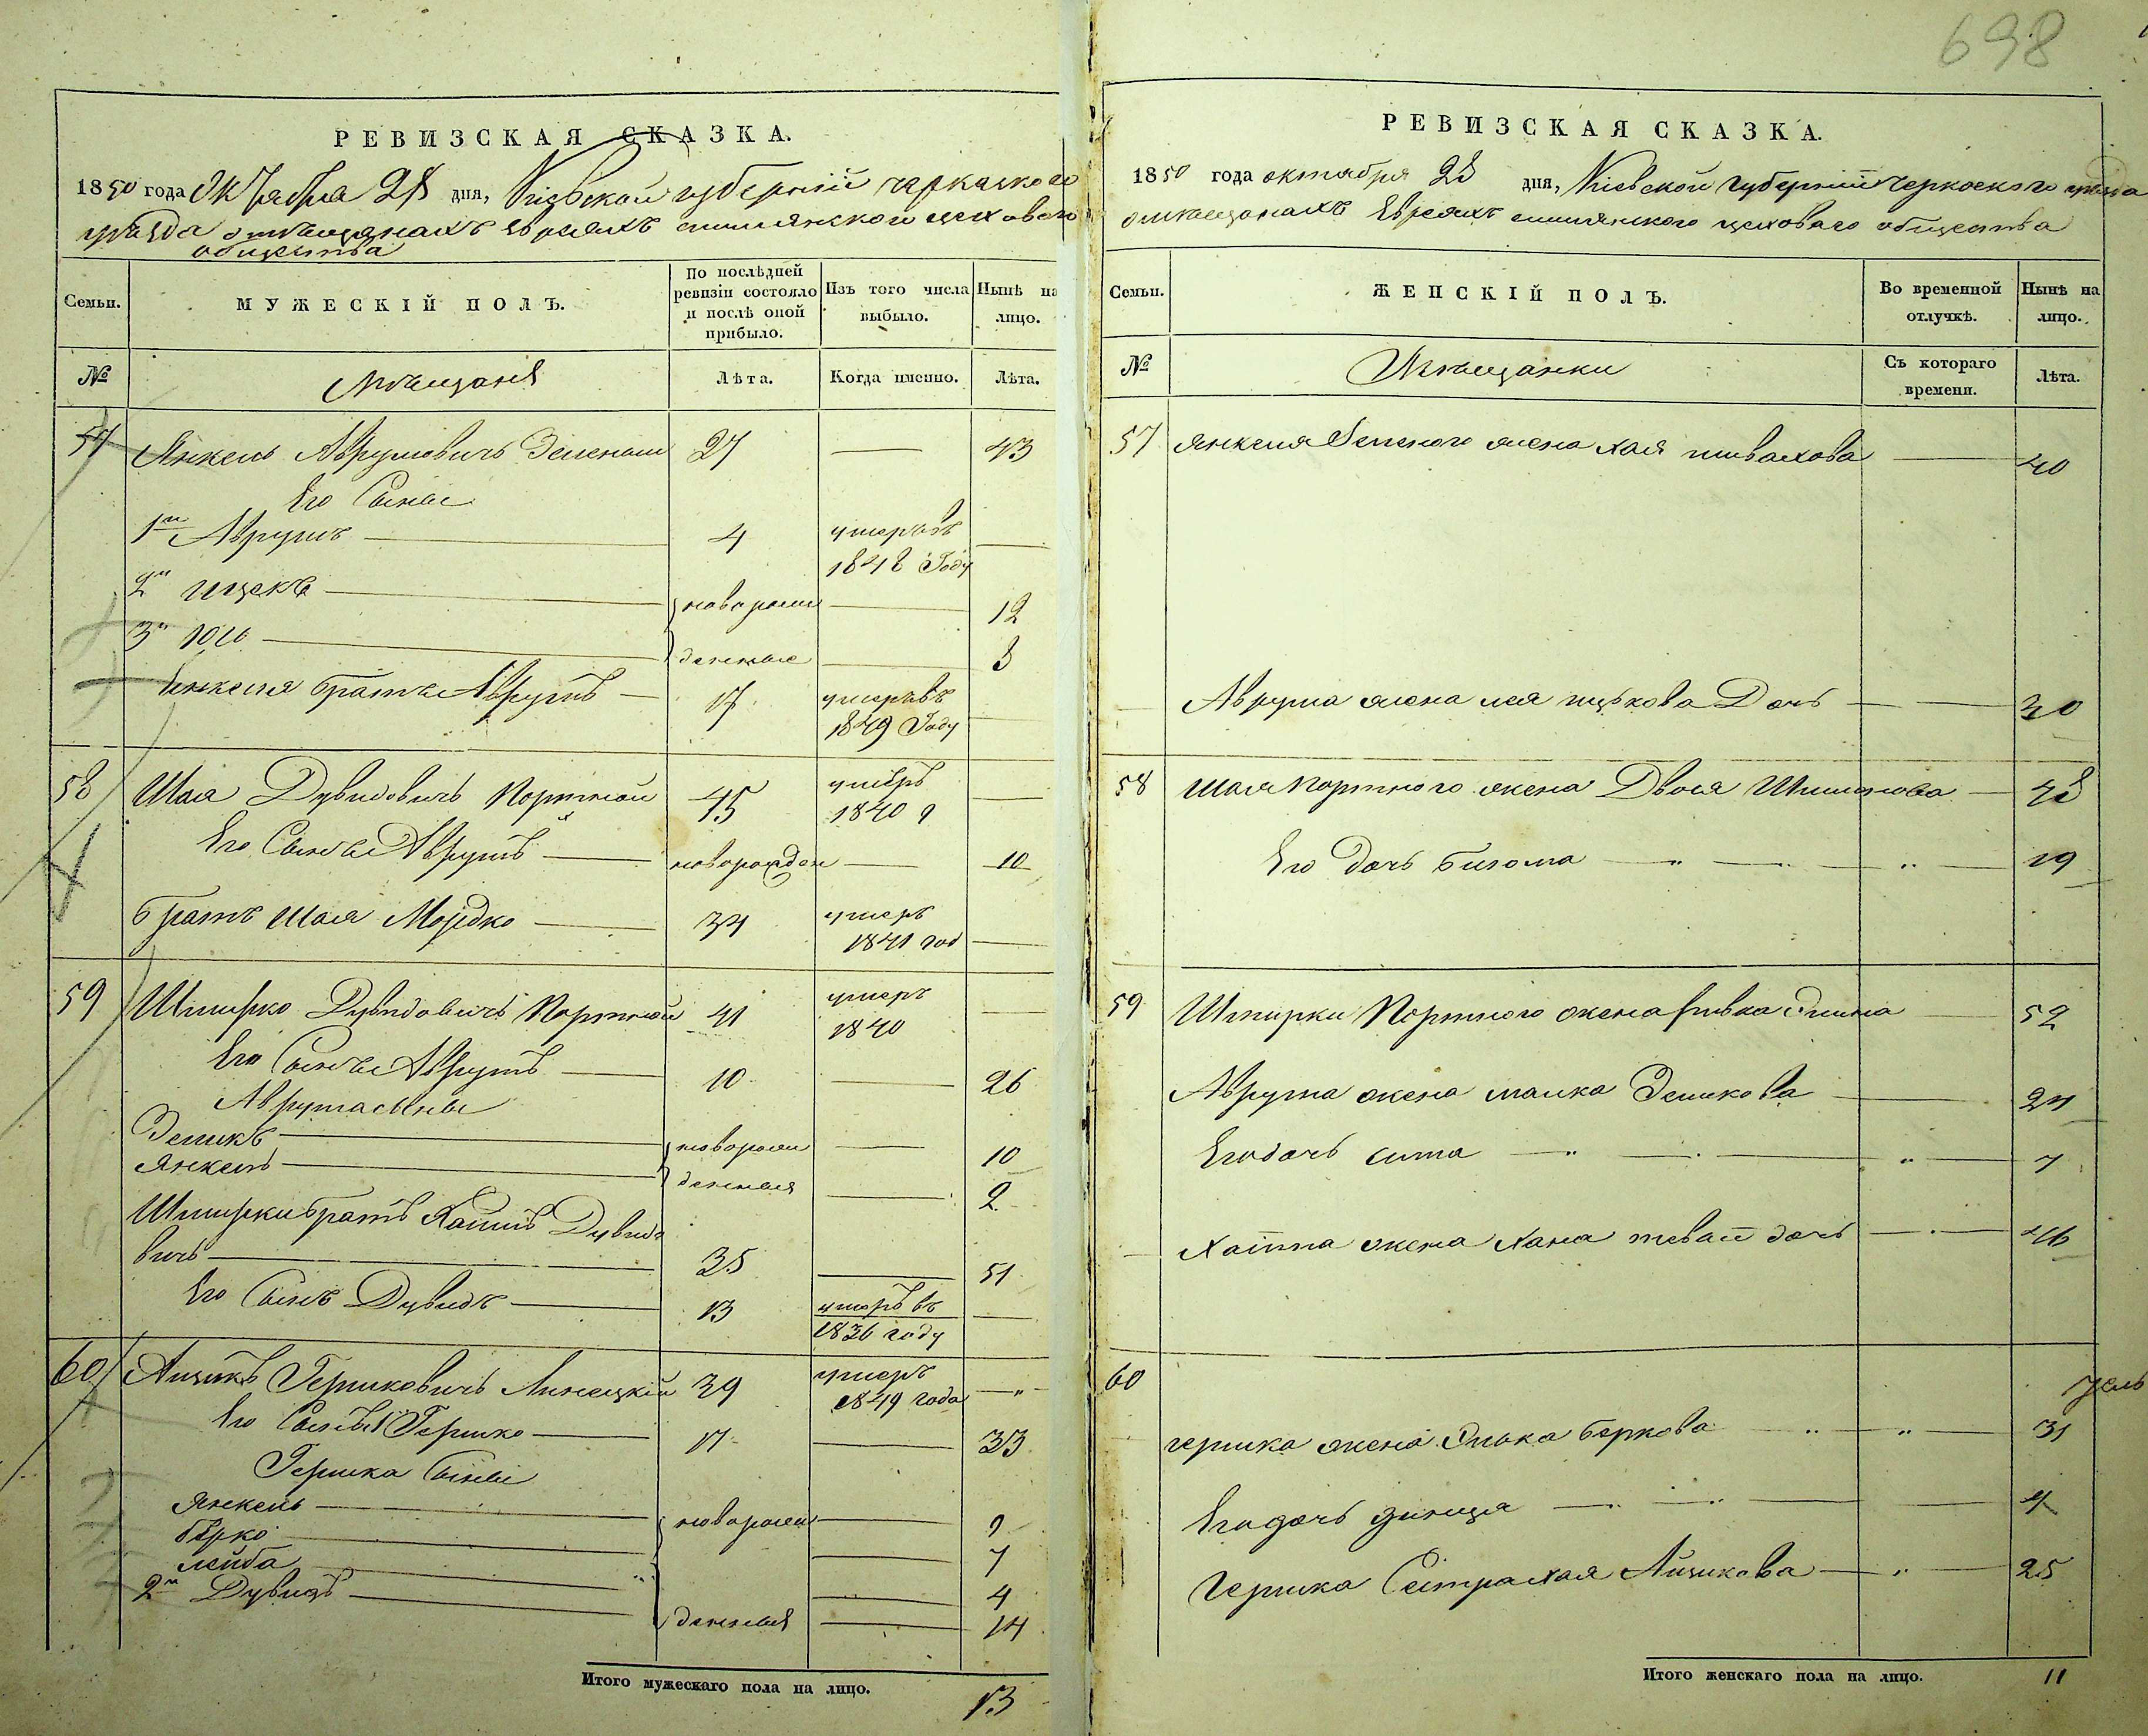 698
РЕВИЗСКАЯ СКАЗКА.
1850 года Октября 28 дня, Киевской губерніи черкаского
уезда о мѣщанахъ евреяхъ цеховаго
общества
Семьи.
МУЖЕСКІЙ ПОЛЪ.
По послѣдней ревизіи состояло и послѣ оной прибыло.
Изъ того числа выбыло.
Нынѣ на лицо.
№
Мѣщане
Лѣта.
Когда именно.
Лѣта.
57 Янкель Аврумовичъ Зеленой 27 — 43
Его Сыны
1й Аврумъ — 4 умеръ въ 1848 Году —
2й Ицекъ — новорож — 12
3й Юсь — денные — 8
Янкеля братъ Аврумъ — 17 умеръ въ 1849 Году —
58 Шая Дувидовичъ Портной 45 умеръ 1840 —
Его Сынъ Аврумъ — новорожден — 10
братъ Шая Мордко — 34 умеръ 1841 год —
59 Шпирко Дувидовичъ Портной 41 умеръ 1840 —
Его Сынъ Аврумъ — 10 — 26
Аврума сыны
Зеликъ — новорож — 10
Янкель — денныя — 2
Шпирки братъ Хаимъ Дувидо
вичъ — 35 — 51
Его Сынъ Дувидъ — 13 умеръ въ 1836 году —
60 Айзикъ Гершковичъ Линецкій 39 умеръ 1849 года —
Его Сынъ 1 Гершко — 17 — 33
Гершка Сыны
Янкель — новорож — 9
берко — 7
лейба — 4
2й Дувидъ — денныя — 14
Итого мужескаго пола на лицо. 13
РЕВИЗСКАЯ СКАЗКА.
1850 года октября 28 дня, Киевской Губерніи Черкоского уезда
о мѣщанахъ Евреяхъ цеховаго общества
Семьи.
ЖЕНСКІЙ ПОЛЪ.
Во временной отлучкѣ.
Нынѣ на лицо.
№
Мѣщанки
Съ котораго времени.
Лѣта.
57 Янкеля Зеленого жена Хая — 40
Аврума жена лея Дочь — 30
58 Шая Портного жена Двося Шимонова — 48
Его дочь — 19
59 Шпирки Портного жена Ривка — 52
Аврума жена малка Зеликова — 24
Его дочь сима — 7
Хаима жена Хана дочь — 46
60
Гершка жена беркова — 31
Его дочь — 4
Гершка Сестра Хая Айзикова — 25
Итого женскаго пола на лицо. 11